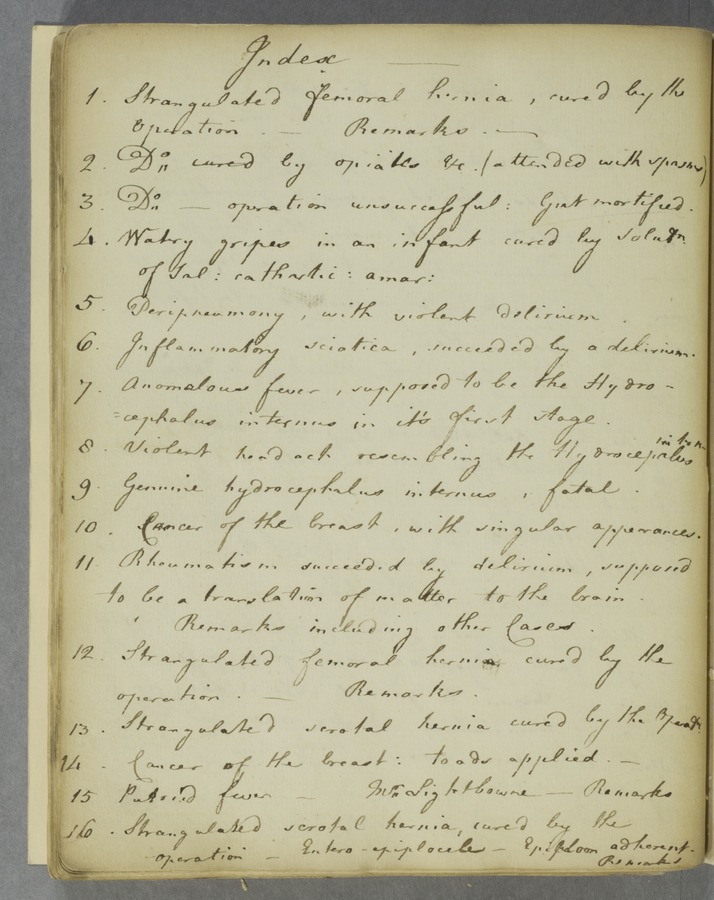 Index
1. Strangulated femoral hernia, cured by the
operation. — Remarks. —
2. Do. cured by opiates &c. (attended with spasms)
3. Do. — operation unsuccessful: Gut mortified.
4. Watry gripes in an infant cured by Solutn.
of Sal: cathartic: amar:
5. Peripneumony, with violent delirium.
6. Inflammatory sciatica, succeeded by a delirium.
7. Anomalous fever, supposed to be the Hydro-
=cephalus internus in it's first stage.
8. Violent headach resembling the Hydrocephalus
9. Genuine hydrocephalus internus, fatal.
10. Cancer of the breast, with singular appearances.
11. Rheumatism succeeded by delirium, supposed
to be a translation of matter to the brain.
Remarks including other Cases.
12. Strangulated femoral hernia cured by the
operation. — Remarks.
13. Strangulated scrotal hernia cured by the Operatn.
14. Cancer of the breast: toads applied. —
15 Putrid fever — Mrs. Lightbowne — Remarks
16. Strangulated scrotal hernia, cured by the
operation — Entero-epiplocele — Epiploon adherent.
Remarks